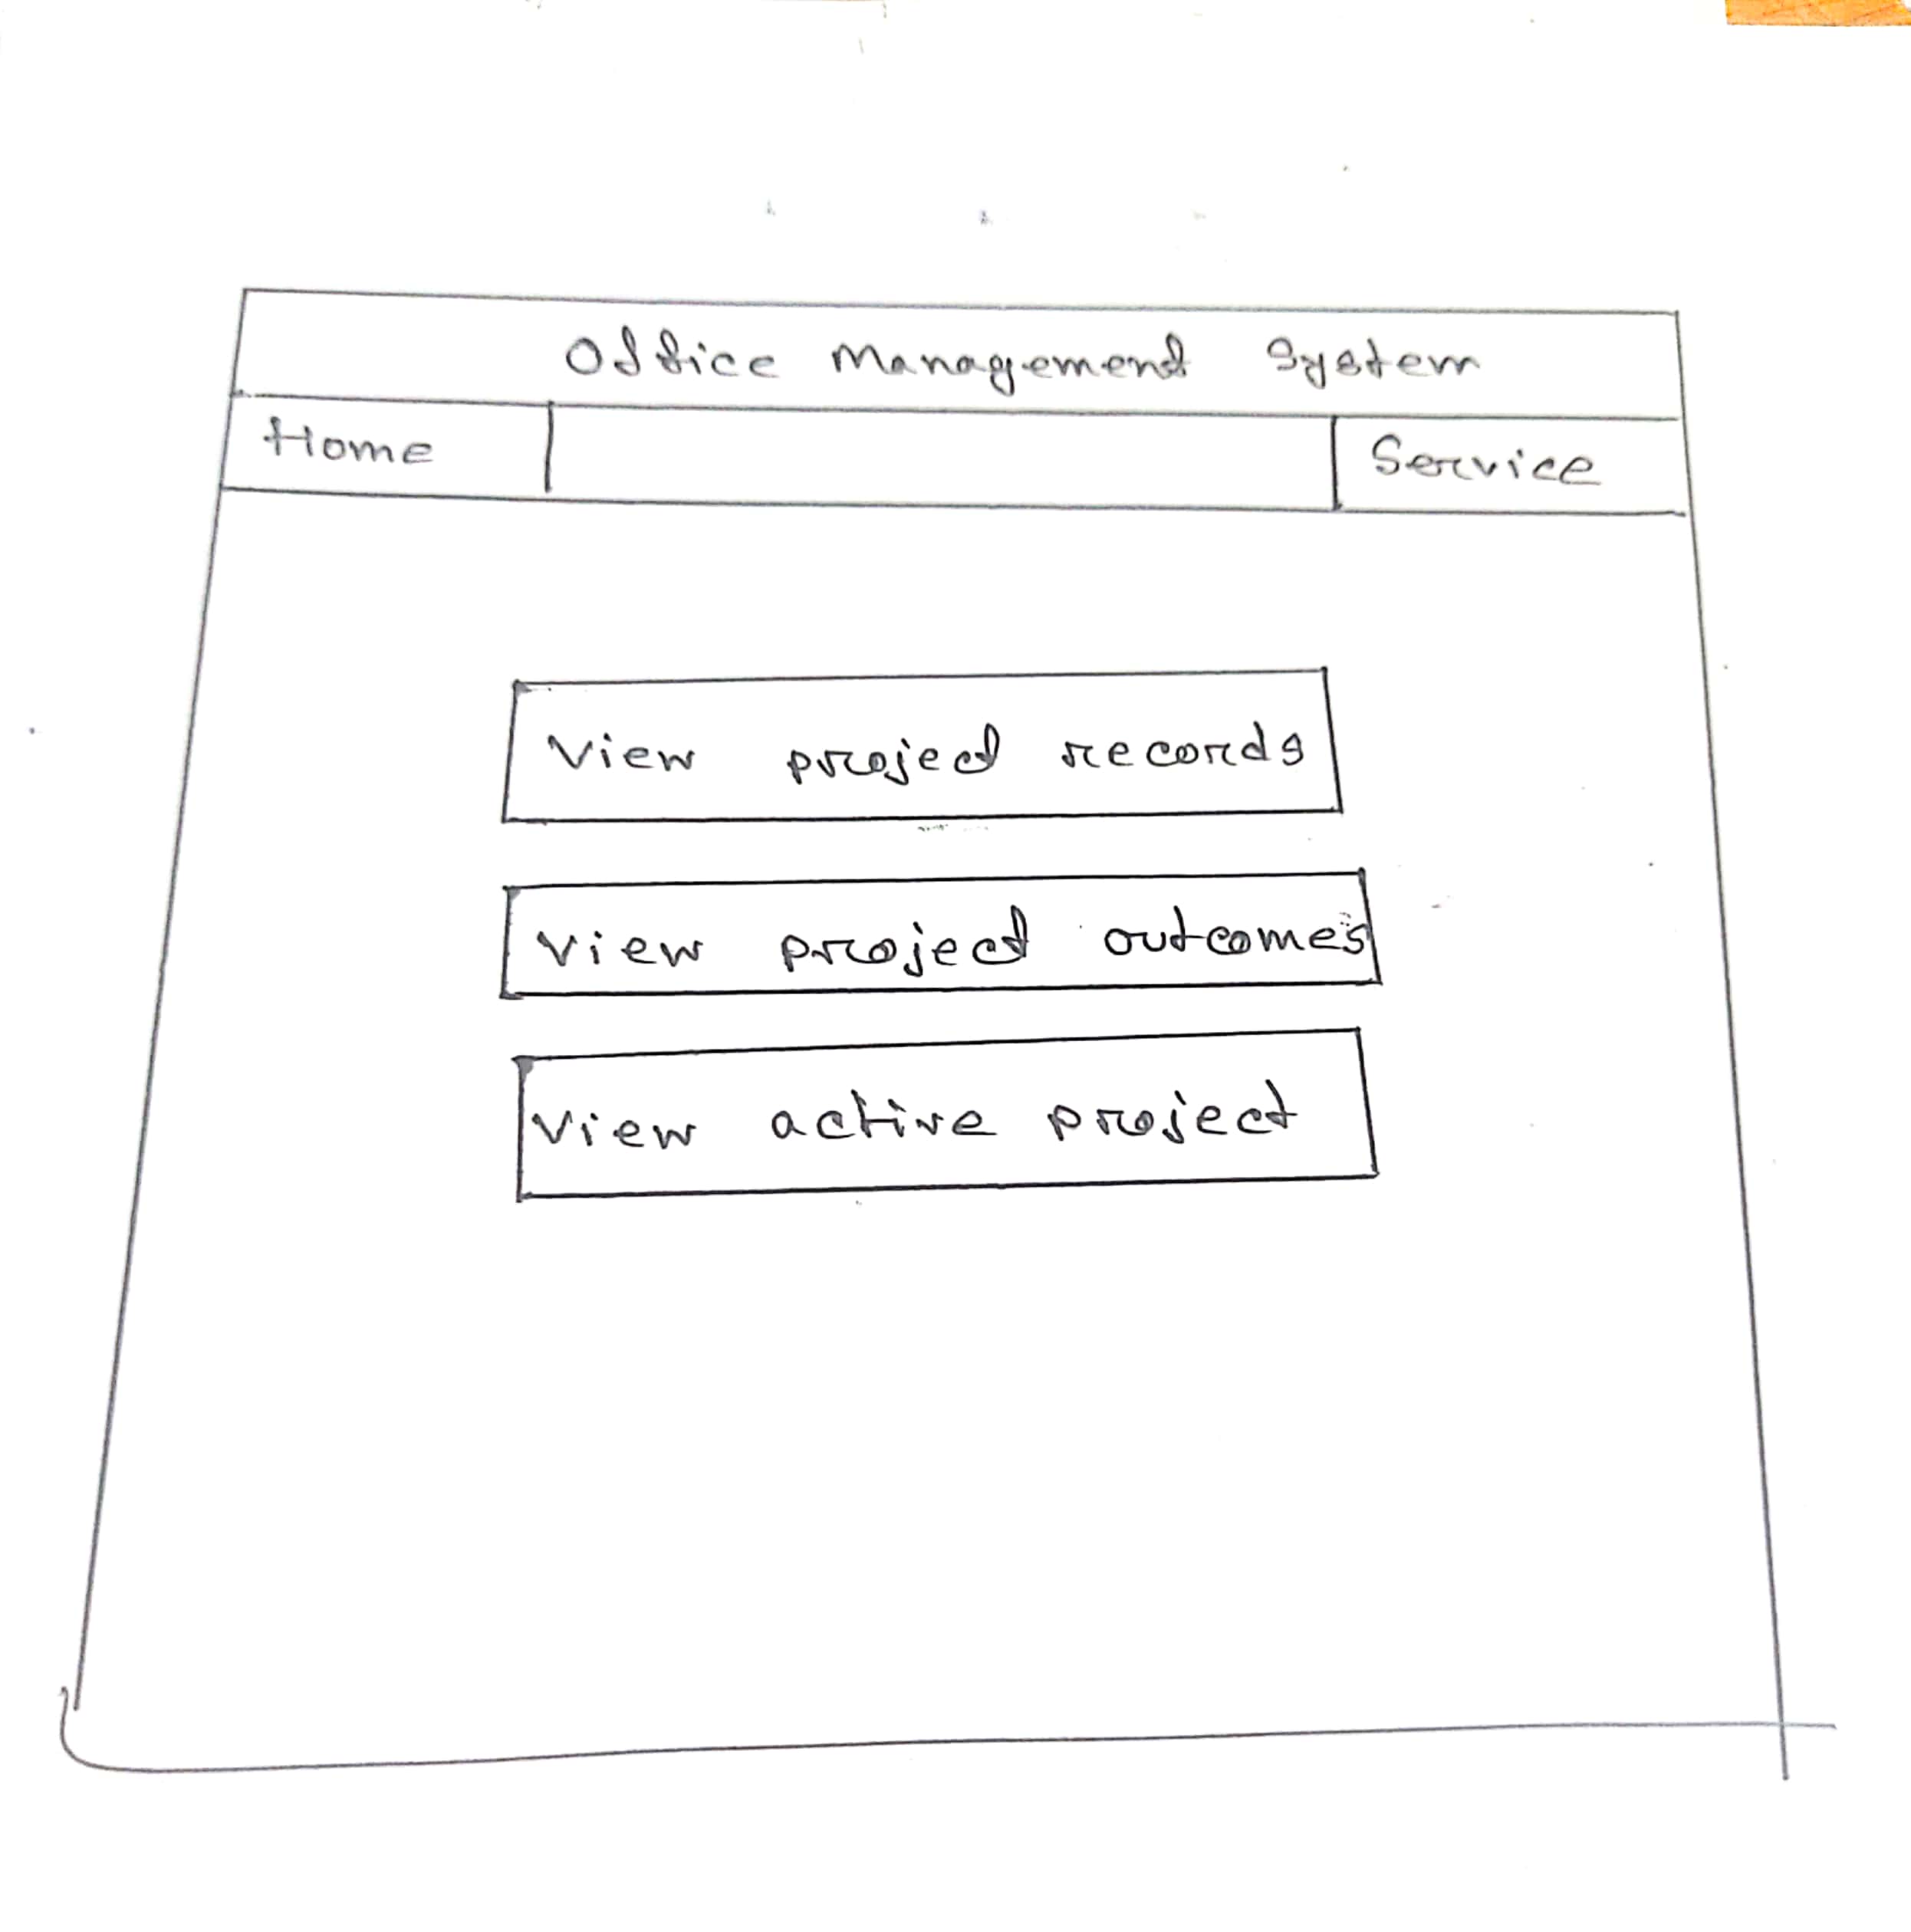 Office Management System
Home
Service
View project records
View project outcomes
View active project